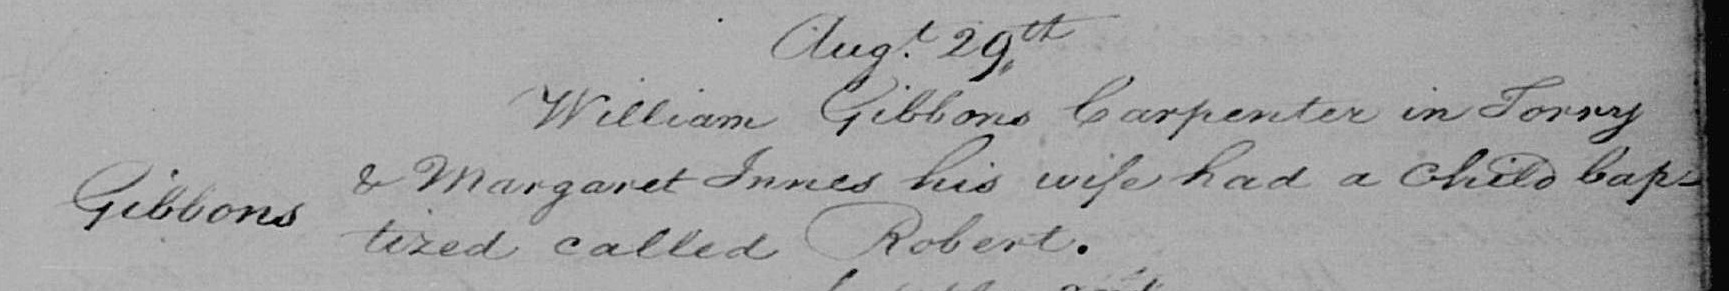 Augt. 29th
William Gibbons Carpenter in Torry
Gibbons & Margaret Innes his wife had a Child bap-
tized called Robert.